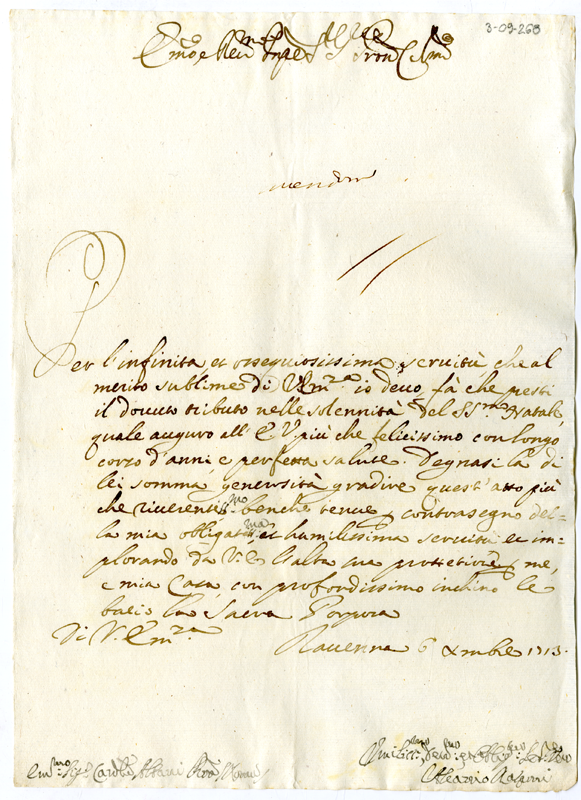 3-09-268
Em̃o e Rev.mo
Per l'infinita et ossequiosissima servitù che al
merito sublime di V. Em.za io devo, fà che presti
il dovuto tributo nelle solennità del SS.mo Natale,
quale auguro all' E V più che felicissimo con longo
corzo d'anni e perfetta salute. Degnasi la di
lei somma generosità gradire quest'atto più
che riverentis.mo benche tenue contrasegno del-
la mia obligat.ma et humilissima servitù et im-
plorando da V. E. l'alta sua protettione me,
e mia Casa, con profondissimo inchino le
bacio la Sacra Porpora
Di V. Em.za Ravenna 6 Xmbre 1713.
Humiliss.mo
Em.mo Sig.r Card.le Albani